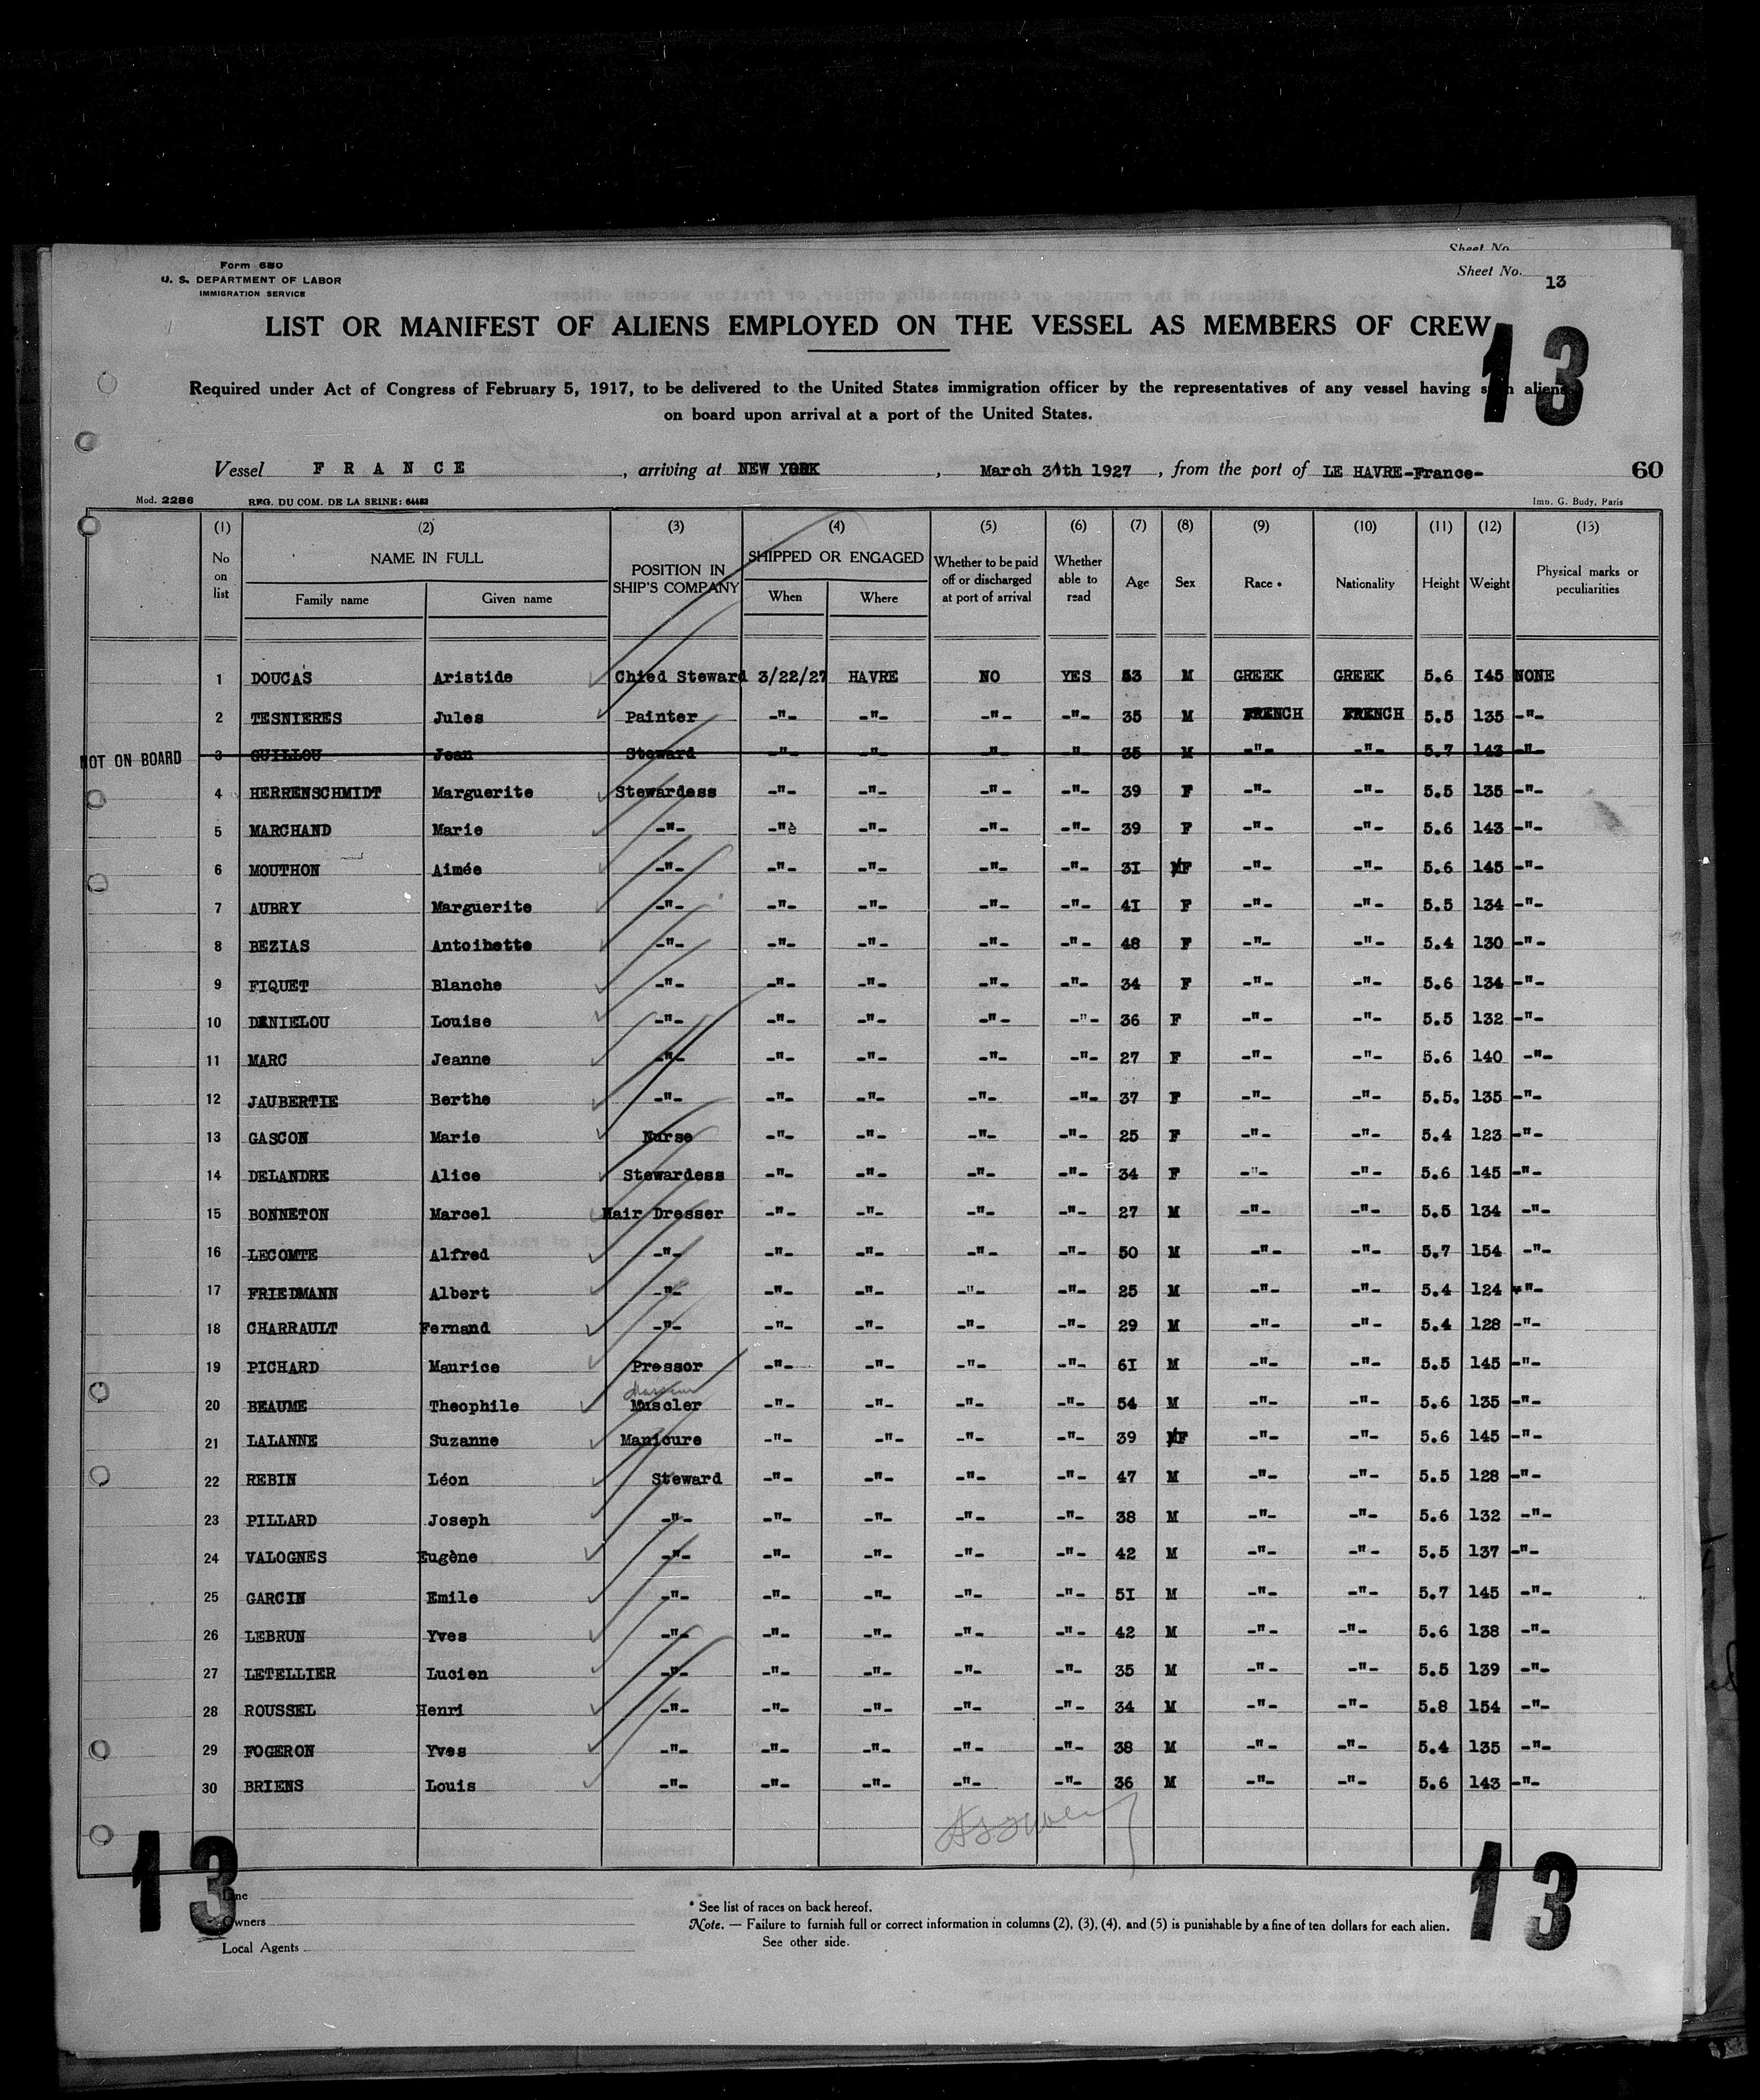 Sheet No.
Sheet No. 13
Form 680
U. S. DEPARTMENT OF LABOR
IMMIGRATION SERVICE
LIST OR MANIFEST OF ALIENS EMPLOYED ON THE VESSEL AS MEMBERS OF CREW
13
Required under Act of Congress of February 5, 1917, to be delivered to the United States immigration officer by the representatives of any vessel having such aliens
on board upon arrival at a port of the United States.
Vessel FRANCE, arriving at NEW YORK, March 31th 1927, from the port of LE HAVRE-France- 60
Mod. 2286 REG. DU COM. DE LA SEINE: 64483 Imp. G. Budy, Paris
(1) (2) (3) (4) (5) (6) (7) (8) (9) (10) (11) (12) (13)
No on list NAME IN FULL Family name Given name POSITION IN SHIP'S COMPANY SHIPPED OR ENGAGED When Where Whether to be paid off or discharged at port of arrival Whether able to read Age Sex Race * Nationality Height Weight Physical marks or peculiarities
1 DOUCAS Aristide Chied Steward 3/22/27 HAVRE NO YES 53 M GREEK GREEK 5.6 I45 NONE
2 TESNIERES Jules Painter -"- -"- -"- -"- 35 M FRENCH FRENCH 5.5 135 -"-
NOT ON BOARD 3 GUILLOU Jean Steward -"- -"- -"- -"- 35 M -"- -"- 5.7 143 -"-
4 HERRENSCHMIDT Marguerite Stewardess -"- -"- -"- -"- 39 F -"- -"- 5.5 135 -"-
5 MARCHAND Marie -"- -"è -"- -"- -"- 39 F -"- -"- 5.6 143 -"-
6 MOUTHON Aimée -"- -"- -"- -"- -"- 3I F -"- -"- 5.6 145 -"-
7 AUBRY Marguerite -"- -"- -"- -"- -"- 4I F -"- -"- 5.5 134 -"-
8 BEZIAS Antoihette -"- -"- -"- -"- -"- 48 F -"- -"- 5.4 130 -"-
9 FIQUET Blanche -"- -"- -"- -"- -"- 34 F -"- -"- 5.6 134 -"-
10 DANIELOU Louise -"- -"- -"- -"- -"- 36 F -"- -"- 5.5 132 -"-
11 MARC Jeanne -"- -"- -"- -"- -"- 27 F -"- -"- 5.6 140 -"-
12 JAUBERTIE Berthe -"- -"- -"- -"- -"- 37 F -"- -"- 5.5. 135 -"-
13 GASCON Marie Nurse -"- -"- -"- -"- 25 F -"- -"- 5.4 123 -"-
14 DELANDRE Alice Stewardess -"- -"- -"- -"- 34 F -"- -"- 5.6 145 -"-
15 BONNETON Marcel Hair Dresser -"- -"- -"- -"- 27 M -"- -"- 5.5 134 -"-
16 LECOMTE Alfred -"- -"- -"- -"- -"- 50 M -"- -"- 5.7 154 -"-
17 FRIEDMANN Albert -"- -"- -"- -"- -"- 25 M -"- -"- 5.4 124 -"-
18 CHARRAULT Fernand -"- -"- -"- -"- -"- 29 M -"- -"- 5.4 128 -"-
19 PICHARD Maurice Pressor -"- -"- -"- -"- 6I M -"- -"- 5.5 145 -"-
20 BEAUME Theophile Muscler -"- -"- -"- -"- 54 M -"- -"- 5.6 135 -"-
21 LALANNE Suzanne Manicure -"- -"- -"- -"- 39 F -"- -"- 5.6 145 -"-
22 REBIN Léon Steward -"- -"- -"- -"- 47 M -"- -"- 5.5 128 -"-
23 PILLARD Joseph -"- -"- -"- -"- -"- 38 M -"- -"- 5.6 132 -"-
24 VALOGNES Eugène -"- -"- -"- -"- -"- 42 M -"- -"- 5.5 137 -"-
25 GARCIN Emile -"- -"- -"- -"- -"- 5I M -"- -"- 5.7 145 -"-
26 LEBRUN Yves -"- -"- -"- -"- -"- 42 M -"- -"- 5.6 138 -"-
27 LETELLIER Lucien -"- -"- -"- -"- -"- 35 M -"- -"- 5.5 139 -"-
28 ROUSSEL Henri -"- -"- -"- -"- -"- 34 M -"- -"- 5.8 154 -"-
29 FOGERON Yves -"- -"- -"- -"- -"- 38 M -"- -"- 5.4 135 -"-
30 BRIENS Louis -"- -"- -"- -"- -"- 36 M -"- -"- 5.6 143 -"-
13 13
Line
Owners
Local Agents
* See list of races on back hereof.
Note. — Failure to furnish full or correct information in columns (2), (3), (4), and (5) is punishable by a fine of ten dollars for each alien.
See other side.